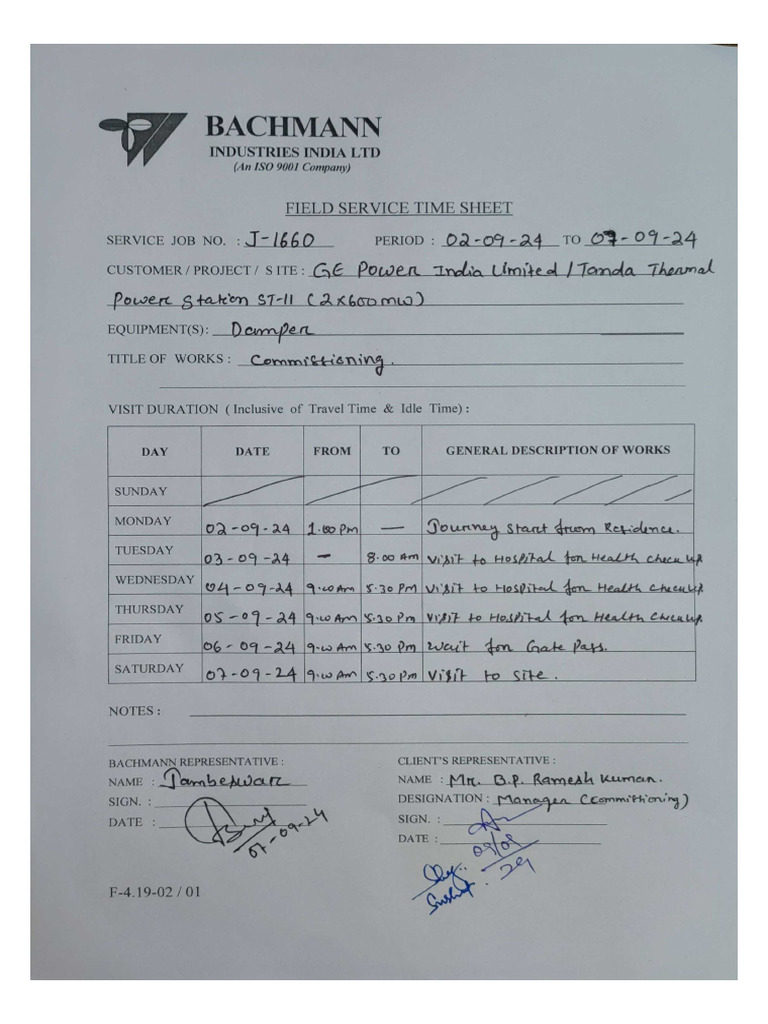 BACHMANN
INDUSTRIES INDIA LTD
(An ISO 9001 Company)
FIELD SERVICE TIME SHEET
SERVICE JOB NO. : J-1660 PERIOD : 02-09-24 TO 07-09-24
CUSTOMER / PROJECT / SITE : GE Power India Limited / Tanda Thermal
Power Station ST-II (2x600MW)
EQUIPMENT(S): Damper
TITLE OF WORKS : Commissioning.
VISIT DURATION ( Inclusive of Travel Time & Idle Time) :
DAY DATE FROM TO GENERAL DESCRIPTION OF WORKS
SUNDAY
MONDAY 02-09-24 1.00 PM — Journey start from Residence.
TUESDAY 03-09-24 - 8.00 AM Visit to Hospital for Health Check up
WEDNESDAY 04-09-24 9.00 AM 5.30 PM Visit to Hospital for Health Checkup
THURSDAY 05-09-24 9.00 AM 5.30 PM Visit to Hospital for Health Checkup
FRIDAY 06-09-24 9.00 AM 5.30 PM Wait for Gate Pass.
SATURDAY 07-09-24 9.00 AM 5.30 PM Visit to Site.
NOTES :
BACHMANN REPRESENTATIVE : CLIENT'S REPRESENTATIVE :
NAME : Jambeswar NAME : Mr. B.P. Ramesh Kumar.
SIGN. : DESIGNATION : Manager (Commissioning)
DATE : 07-09-24 SIGN. :
DATE : 09/09
24
F-4.19-02 / 01